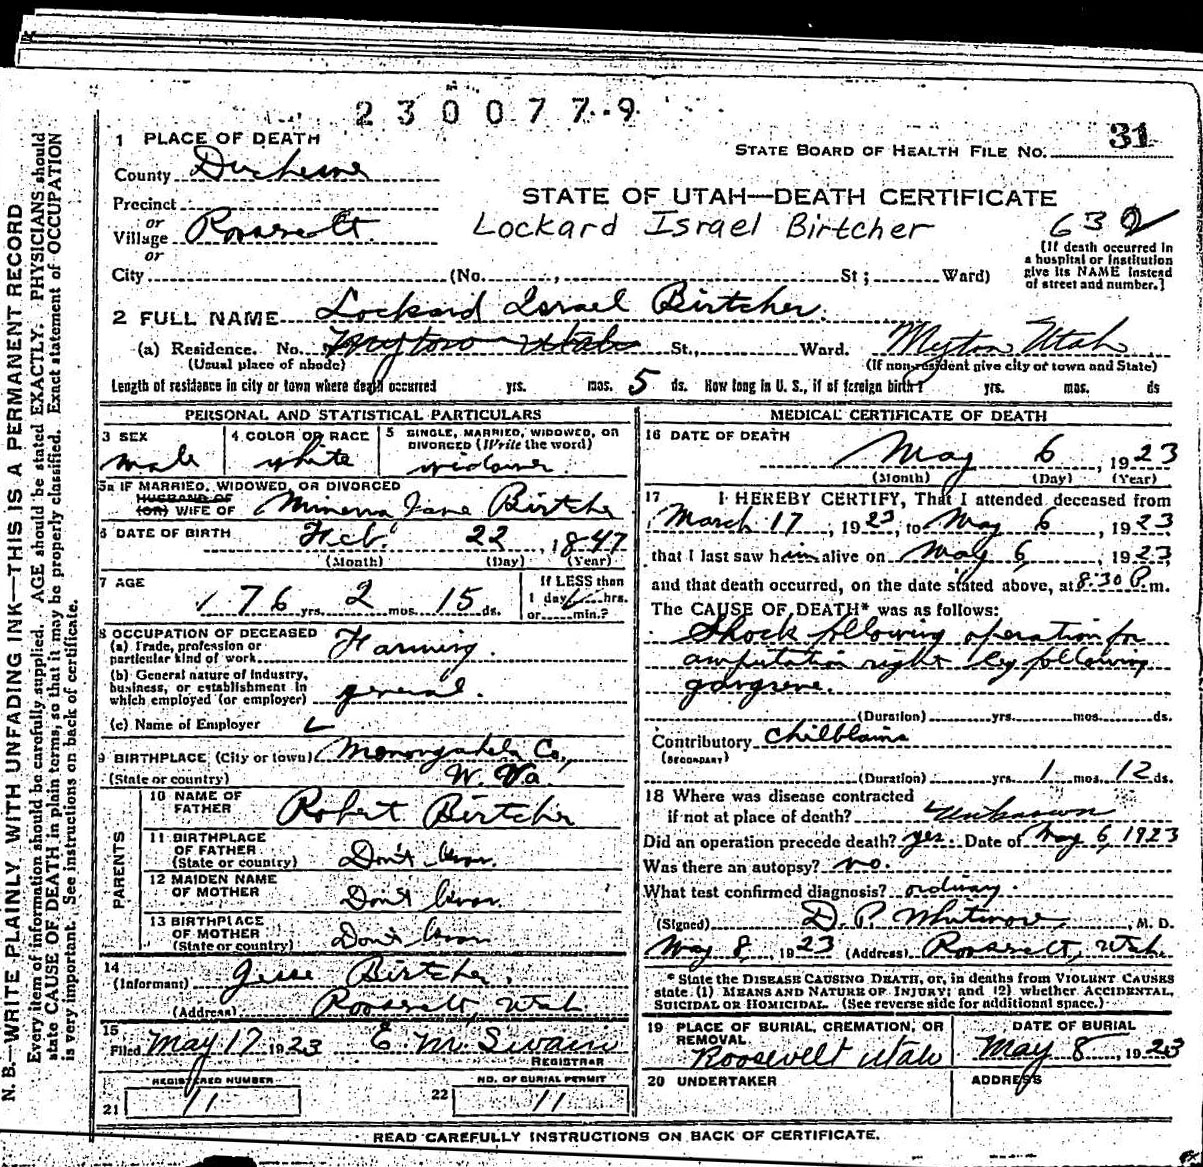 2300779
31
1 PLACE OF DEATH
STATE BOARD OF HEALTH FILE NO.
County Duchesne
STATE OF UTAH—DEATH CERTIFICATE
Precinct
or
Village Roosevelt
Lockard Israel Birtcher
or
City (No. , St; Ward)
[If death occurred in
a hospital or institution
give its NAME instead
of street and number.]
2 FULL NAME Lockard Israel Birtcher
(a) Residence. No. Myton Utah St., Ward. Myton Utah
(Usual place of abode) (If non-resident give city or town and State)
Length of residence in city or town where death occurred yrs. mos. 5 ds. How long in U. S., if of foreign birth? yrs. mos. ds
PERSONAL AND STATISTICAL PARTICULARS
3 SEX
male
4 COLOR OR RACE
white
5 SINGLE, MARRIED, WIDOWED, OR
DIVORCED (Write the word)
widower
5a IF MARRIED, WIDOWED, OR DIVORCED
HUSBAND OF
(OR) WIFE OF Minerva Jane Birtcher
6 DATE OF BIRTH Feb. 22, 1847
(Month) (Day) (Year)
7 AGE
76 yrs. 2 mos. 15 ds.
If LESS than
1 day hrs.
or min.?
8 OCCUPATION OF DECEASED
(a) Trade, profession or
particular kind of work Farming.
(b) General nature of Industry,
business, or establishment in
which employed (or employer) general.
(c) Name of Employer
9 BIRTHPLACE (City or town) Monongahela Co.,
(State or country) W. Va.
PARENTS
10 NAME OF
FATHER Robert Birtcher
11 BIRTHPLACE
OF FATHER
(State or country) Don't know.
12 MAIDEN NAME
OF MOTHER Don't know.
13 BIRTHPLACE
OF MOTHER
(State or country) Don't know
14
(Informant) Jesse Birtcher,
(Address) Roosevelt, Utah
15
Filed May 17 1923 E. M. Swain
REGISTRAR
REGISTERED NUMBER
21 11
NO. OF BURIAL PERMIT
22 11
MEDICAL CERTIFICATE OF DEATH
16 DATE OF DEATH
May 6, 1923
(Month) (Day) (Year)
17 I HEREBY CERTIFY, That I attended deceased from
March 17, 1923, to May 6, 1923
that I last saw him alive on May 6, 1923,
and that death occurred, on the date stated above, at 8:30 P.m.
The CAUSE OF DEATH* was as follows:
Shock following operation for
amputation right leg following
gangrene.
(Duration) yrs. mos. ds.
Contributory Chilblains
(SECONDARY)
(Duration) yrs. 1 mos. 12 ds.
18 Where was disease contracted
if not at place of death? Unknown
Did an operation precede death? yes. Date of May 6, 1923
Was there an autopsy? no.
What test confirmed diagnosis? ordinary.
(Signed) D. P. Whitmore, M. D.
May 8, 1923 (Address) Roosevelt, Utah
* State the DISEASE CAUSING DEATH, or, in deaths from VIOLENT CAUSES
state (1) MEANS AND NATURE OF INJURY; and (2) whether ACCIDENTAL,
SUICIDAL OR HOMICIDAL. (See reverse side for additional space.)
19 PLACE OF BURIAL, CREMATION, OR
REMOVAL
Roosevelt Utah
DATE OF BURIAL
May 8, 1923
20 UNDERTAKER
ADDRESS
READ CAREFULLY INSTRUCTIONS ON BACK OF CERTIFICATE.
N. B.—WRITE PLAINLY WITH UNFADING INK—THIS IS A PERMANENT RECORD
Every item of information should be carefully supplied. AGE should be stated EXACTLY. PHYSICIANS should
state CAUSE OF DEATH in plain terms, so that it may be properly classified. Exact statement of OCCUPATION
is very important. See instructions on back of certificate.